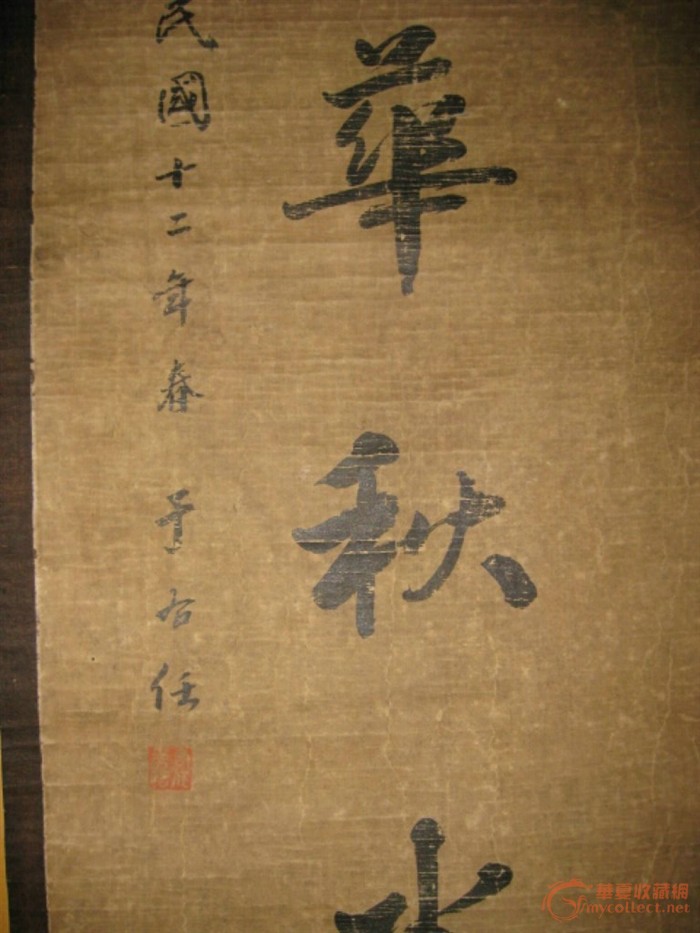 華秋水
民國十二年春 于右任
華夏收藏網
mycollect.net